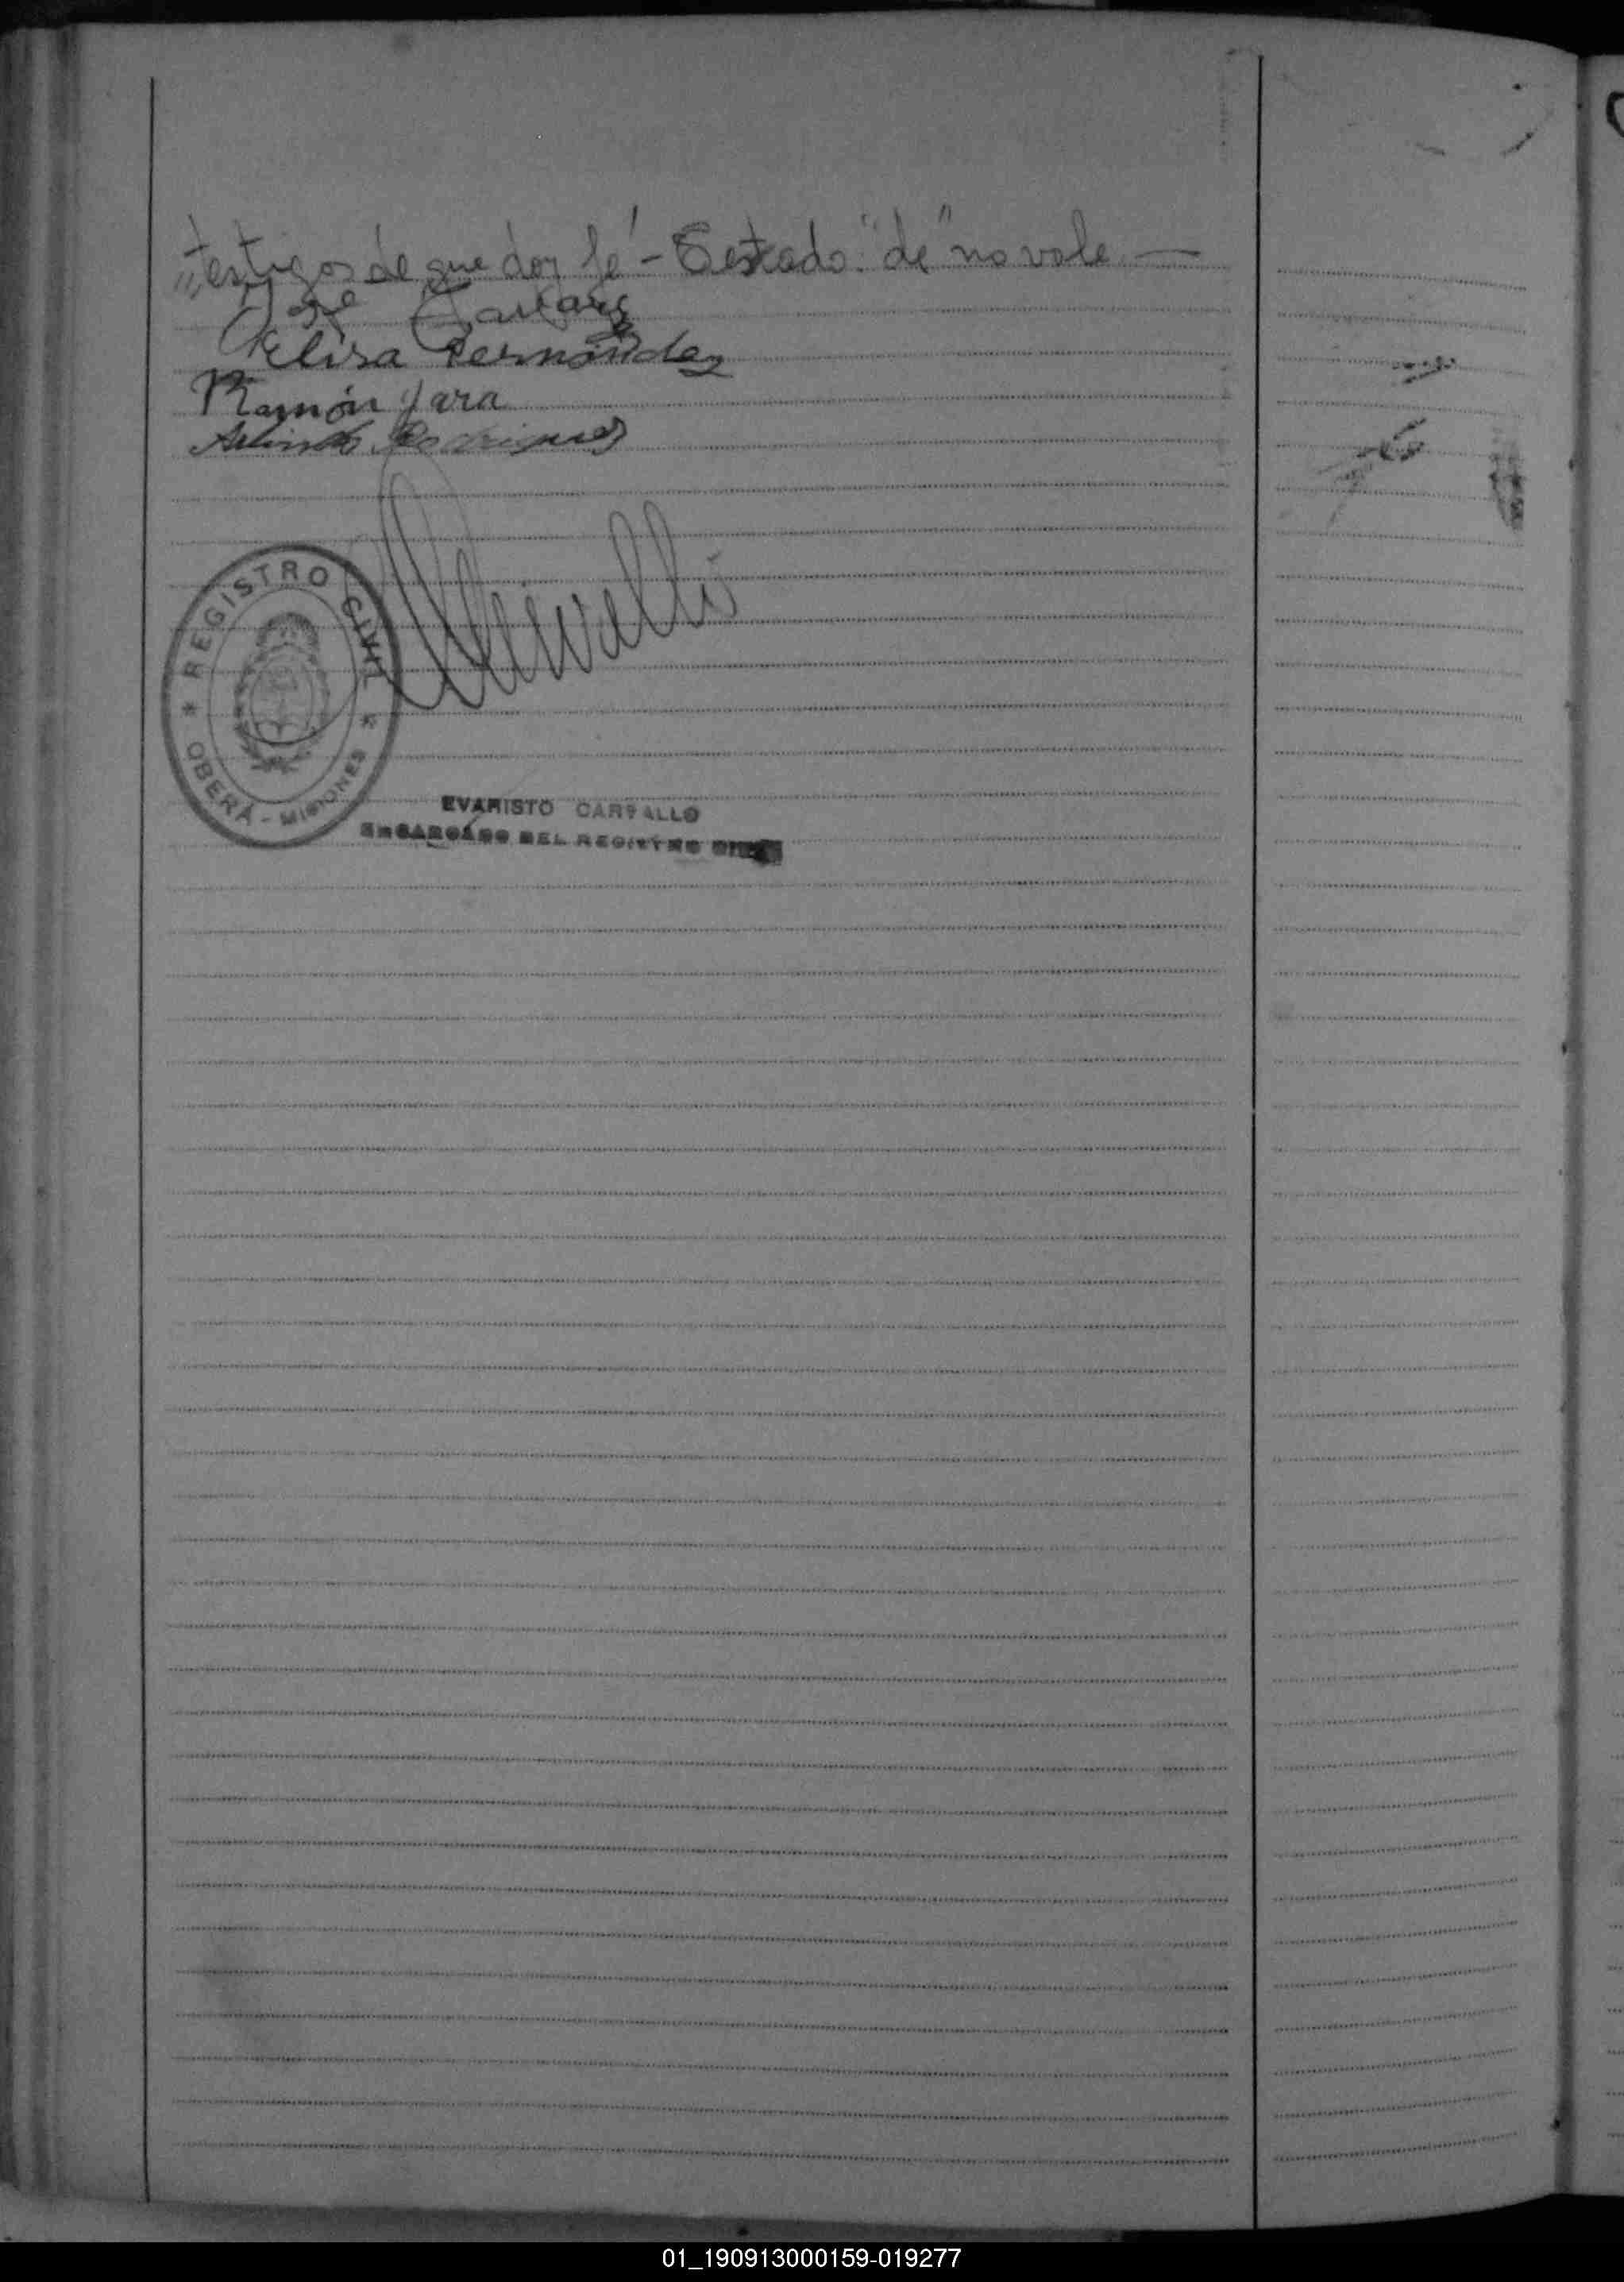 testigos de que doy fé - Testado: "de" no vale. —
José
Elisa Fernández
Ramón Jara
Rodriguez
REGISTRO CIVIL
* OBERÁ - MISIONES *
EVARISTO CARVALLO
ENCARGADO DEL REGISTRO CIVIL
01_190913000159-019277